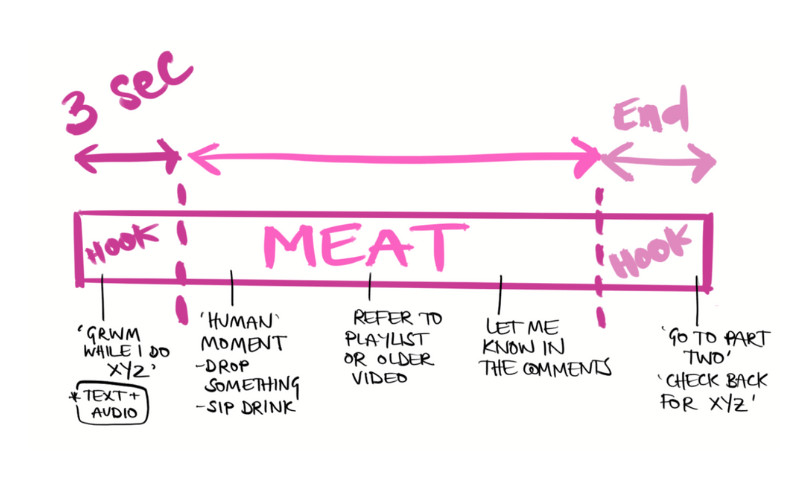 3 sec
End
HOOK
MEAT
HOOK
'GRWM
WHILE I DO
XYZ'
*TEXT+
AUDIO
'HUMAN'
MOMENT
-DROP
SOMETHING
-SIP DRINK
REFER TO
PLAYLIST
OR OLDER
VIDEO
LET ME
KNOW IN
THE COMMENTS
'GO TO PART
TWO'
'CHECK BACK
FOR XYZ'